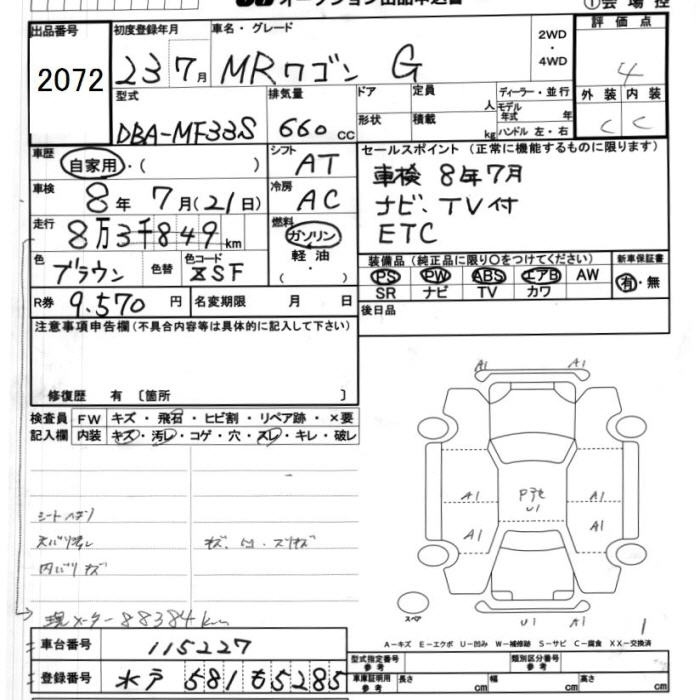 出品番号 初度登録年月 車名・グレード 2WD・4WD 評価点
2072 23 7月 MRワゴン G 4
型式 排気量 ドア 定員 人 ディーラー・並行 外装 内装
DBA-MF33S 660cc 形状 積載 kg モデル年式 年 ハンドル 左・右 C C
車歴 自家用・( ) シフト AT セールスポイント (正常に機能するものに限ります)
車検 8年 7月(21日) 冷房 AC 車検 8年7月
走行 8万3千849km 燃料 ガソリン・軽油・( ) ナビ、TV付
ETC
色 ブラウン 色替 色コード ZSF
装備品 (純正品に限り○をつけてください) 新車保証書
PS PW ABS エアB AW 有・無
SR ナビ TV カワ
R券 9.570円 名変期限 月 日 後日品
注意事項申告欄(不具合内容等は具体的に記入して下さい)
修復歴 有 〔箇所 〕
検査員 FW キズ・飛石・ヒビ割・リペア跡・×要
記入欄 内装 キズ・汚レ・コゲ・穴・スレ・キレ・破レ
A1 A1
A1 A1
U1
A1 A1
内バリキズ
現メーター88384km
スペア U1 A1 1
A-キズ E-エクボ U-凹み W-補修跡 S-サビ C-腐食 XX-交換済
車台番号 115227 型式指定番号 参考 類別区分番号 参考
登録番号 水戸 581 も 5285 車庫証明用 参考 長さ cm 幅 cm 高さ cm